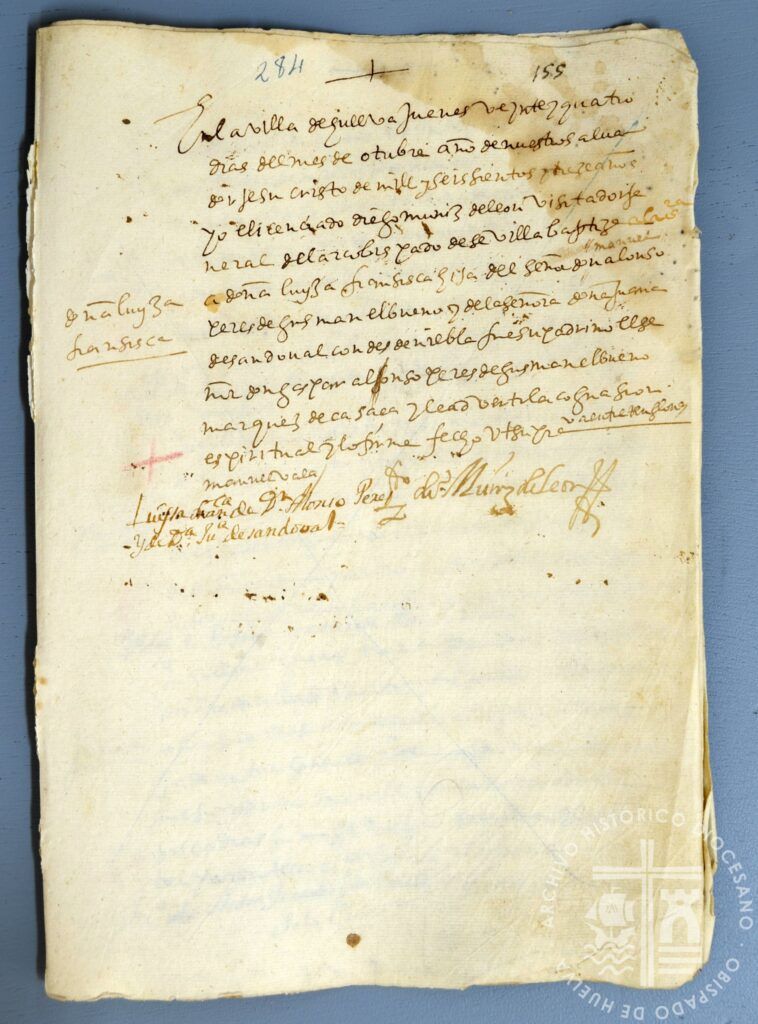 284
+
155
En la villa de guelva Jueves veynte y quatro
dias del mes de otubre año de nuestro salua
dor Jesu cristo de mill y seissientos y treze años
yo el licenciado diego muñiz de leon visitador ge
neral del arsobispado de sevilla baptize
a doña luyza fransisca hija del señor don alonso
manuel
peres de gusman el bueno y de la señora doña Juana
de sandoual condes de niebla fue su padrino el se
ñor don gaspar alfonso peres de gusman el bueno
marques de casasa y le advertí la cognasion
espiritual y lo firme fecho ut supra
doña luyza
fransisca
Luysa de Dn Alonso Perez
y de Da Jua de sandoval
do Muñiz de Leon
ARCHIVO HISTÓRICO DIOCESANO · OBISPADO DE HUELVA